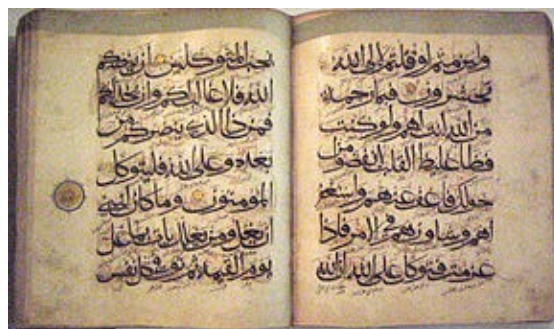 ولئن متم او قتلتم لالى الله
تحشرون فبما رحمة
من الله لنت لهم ولو كنت
فظا غليظ القلب لانفضوا من
حولك فاعف عنهم واستغفر
لهم وشاورهم فى الامر فاذا
عزمت فتوكل على الله ان الله
يحب المتوكلين ان ينصركم
الله فلا غالب لكم وان يخذلكم
فمن ذا الذى ينصركم من
بعده وعلى الله فليتوكل
المؤمنون وما كان لنبى
ان يغل ومن يغلل يات بما غل
يوم القيمة ثم توفى كل نفس